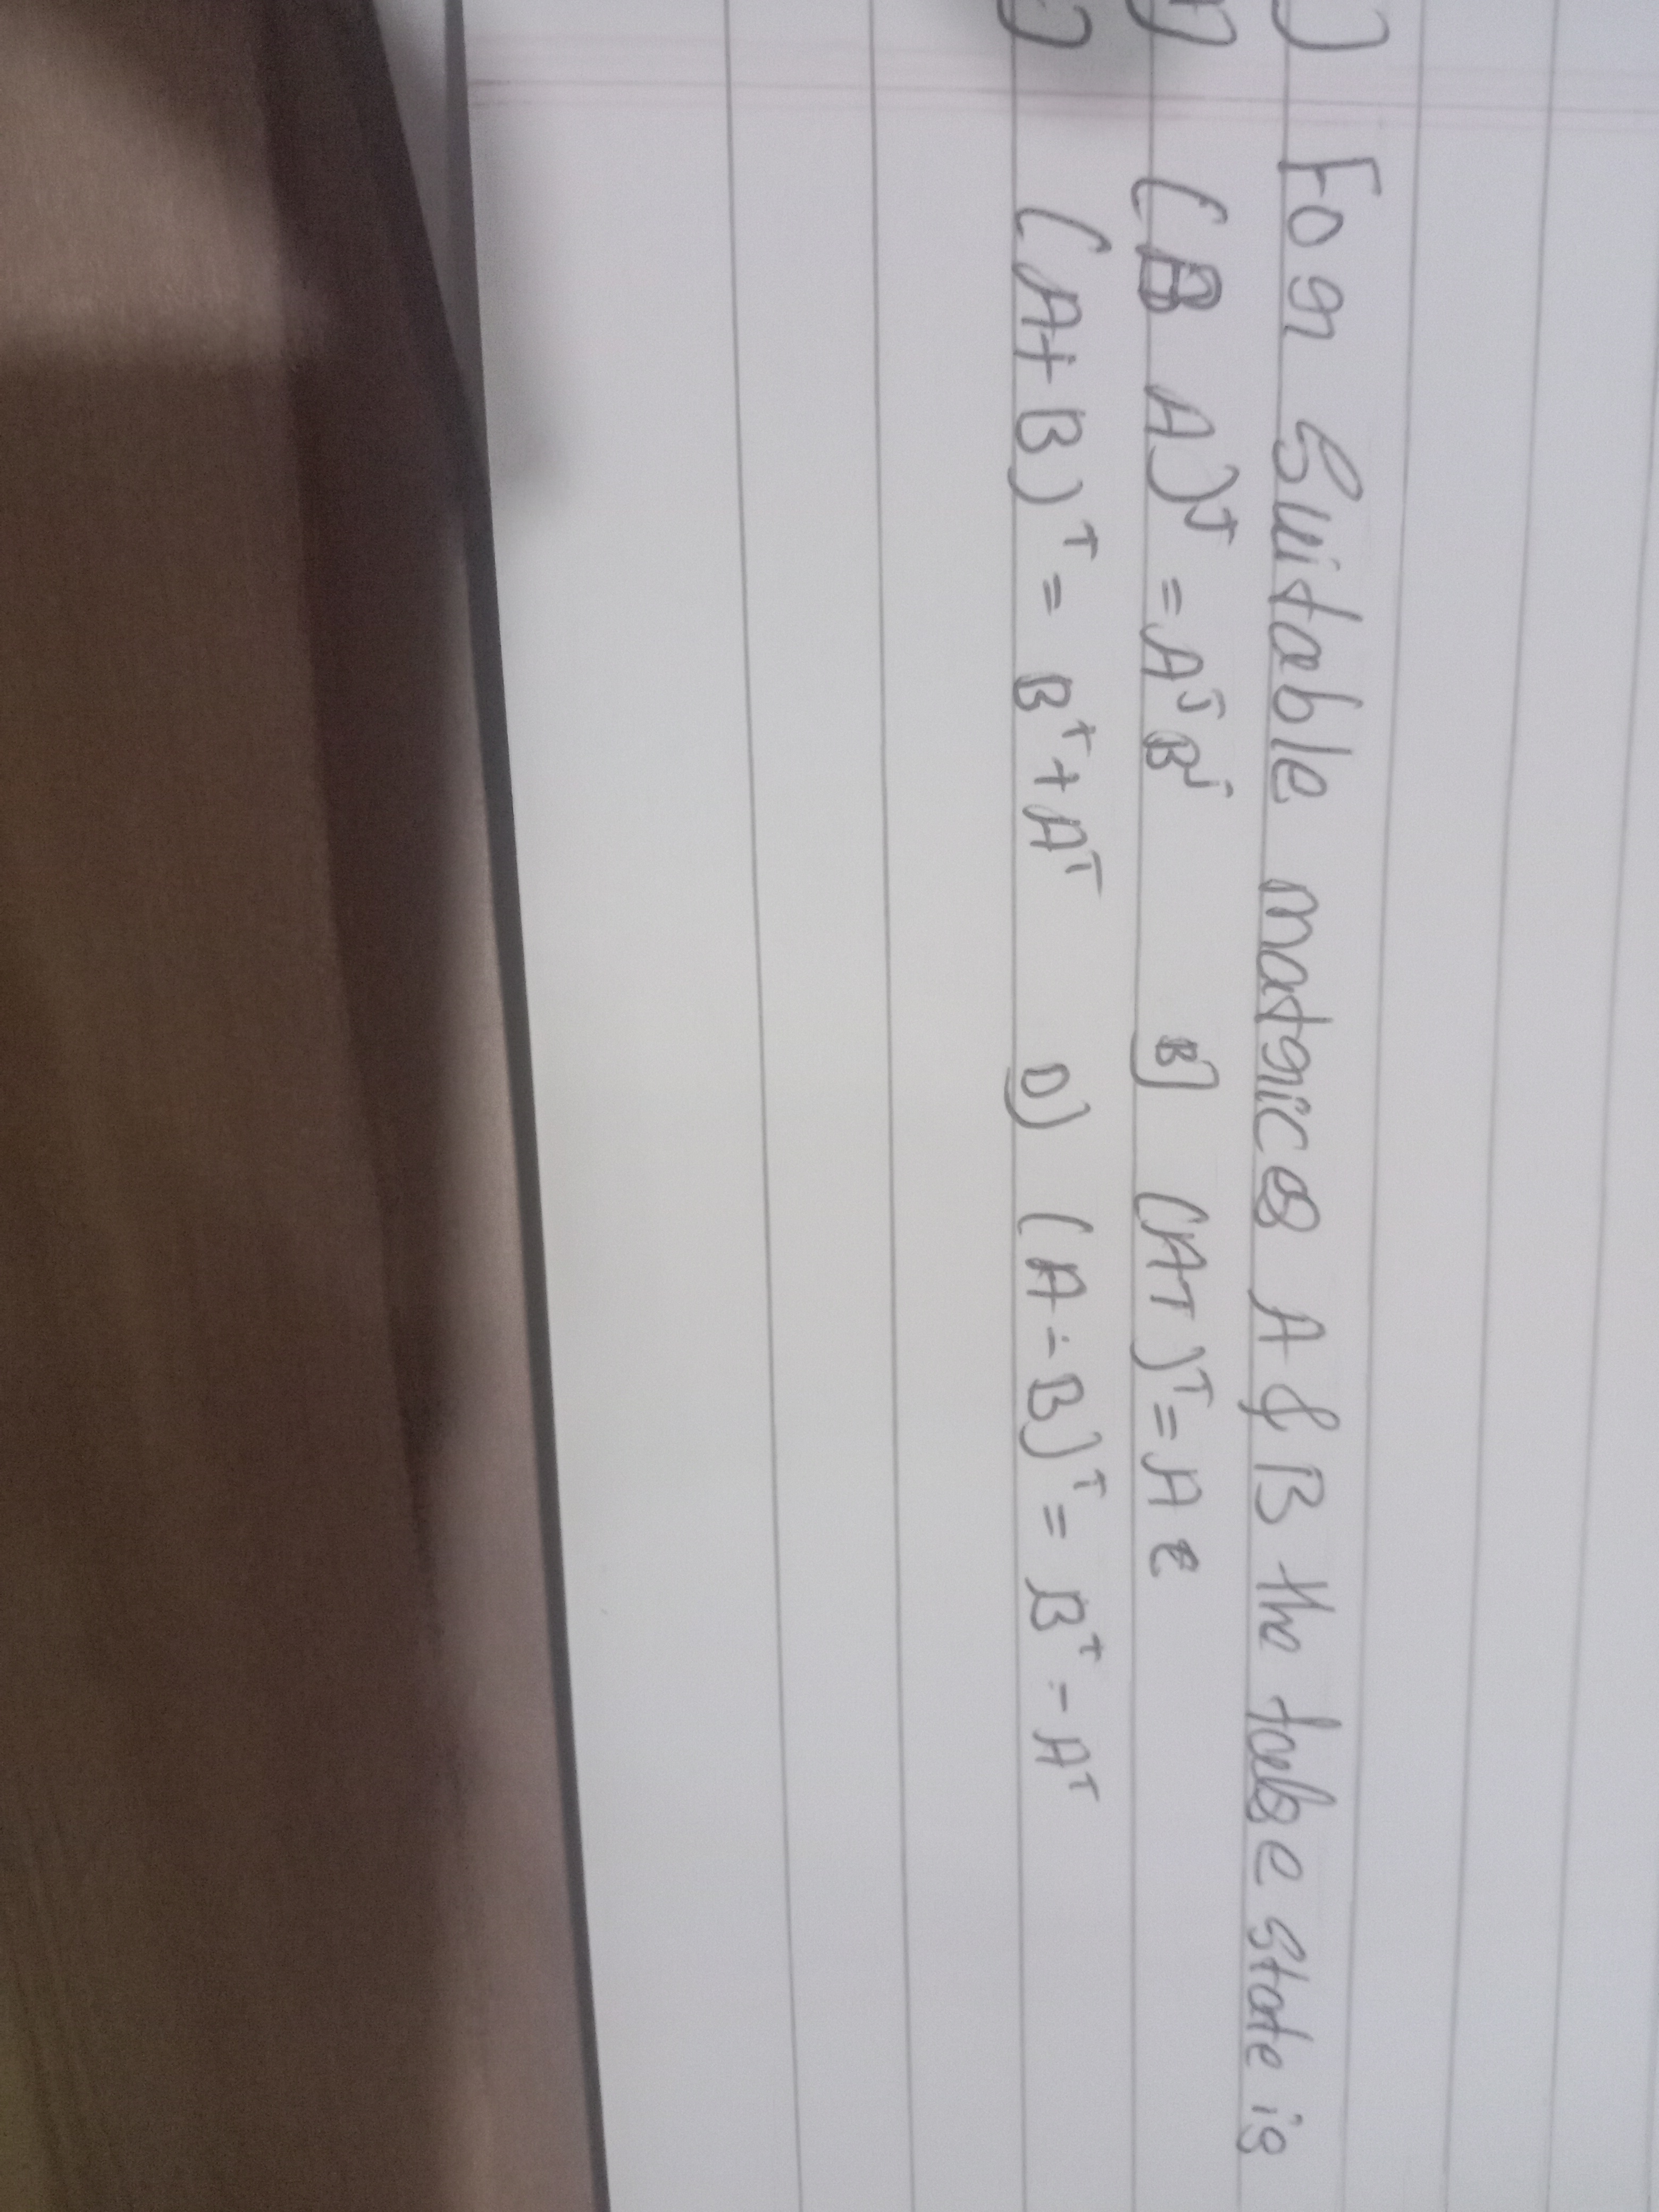 ] For Suitable matrices A & B the false state is
] (B A)ᵀ = AᵀBᵀ B] (Aᵀ)ᵀ = A
] (A+B)ᵀ = Bᵀ+Aᵀ D) (A-B)ᵀ = Bᵀ-Aᵀ